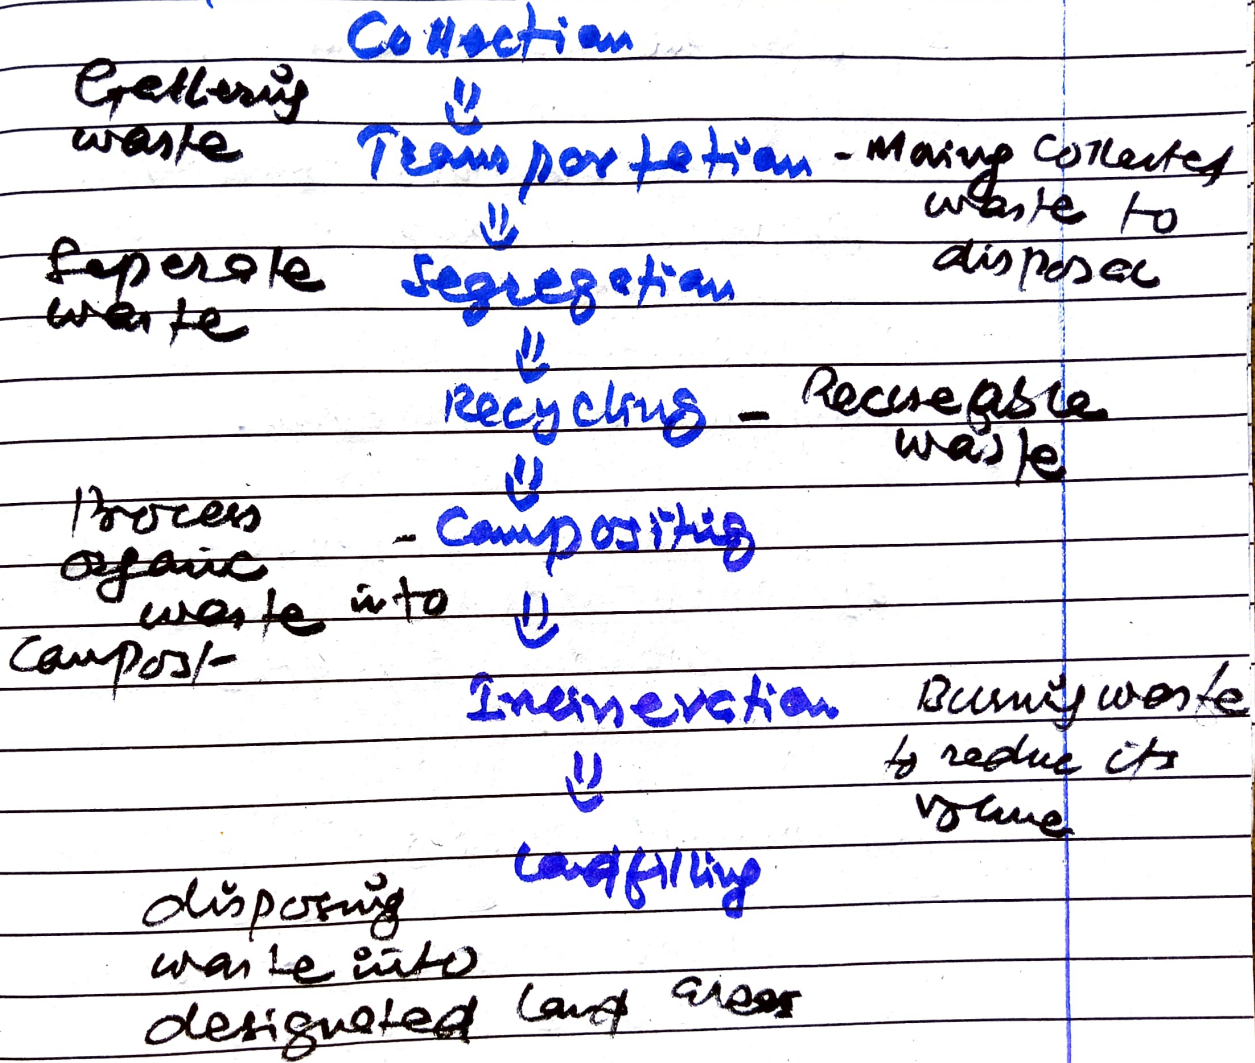 Collection
Gathering
waste
Transportation - Moving Collected
waste to
disposal
Seperate
waste
Segregation
Recycling - Reuseable
waste
Process
organic
waste into
Compost
- Compositig
Incineration
Burning waste
to reduce its
volume
Landfilling
disposing
waste into
designated land areas